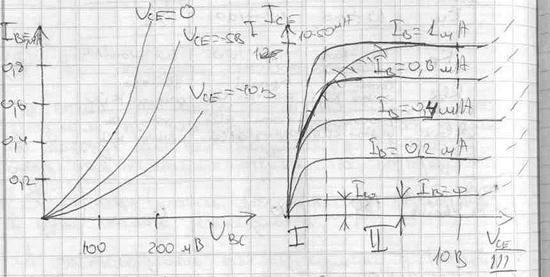 I_BE, мА
V_CE=0
V_CE=-5В
V_CE=-10В
0,8
0,6
0,4
0,2
100
200 мВ
U_BC
I_CE
10-50 мА
I_B=1 мА
I_B=0,8 мА
I_B=0,4 мА
I_B=0,2 мА
I_B=φ
I
II
10В
V_CE
III